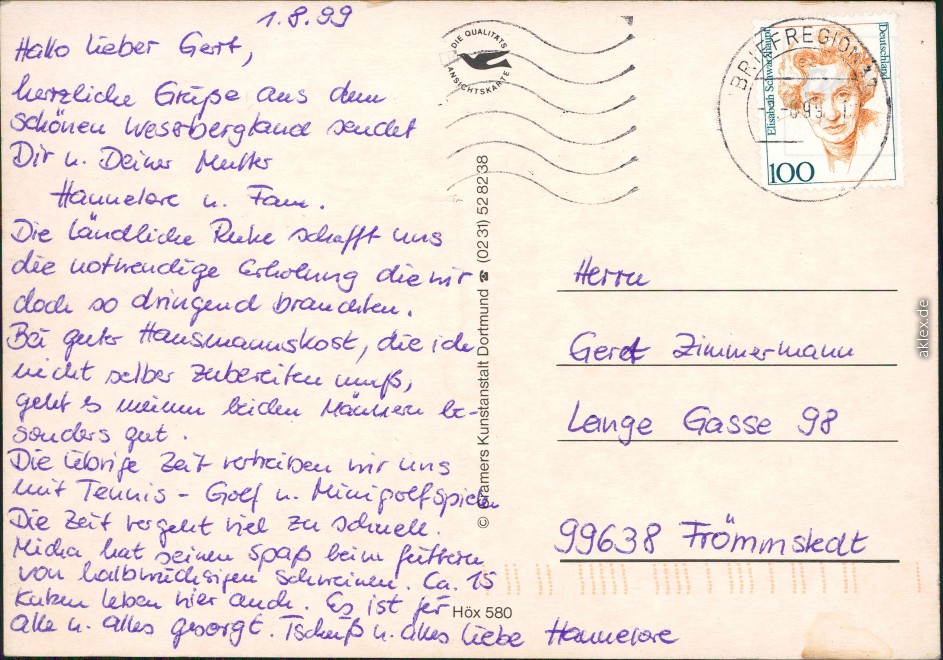 1.8.99
Hallo lieber Gert,
herzliche Grüße aus dem
schönen Weserbergland sendet
Dir u. Deiner Mutter
Hannelore u. Fam.
Die ländliche Ruhe schafft uns
die notwendige Erholung die wir
doch so dringend brauchten.
Bei guter Hausmannskost, die ich
nicht selber zubereiten muß,
geht es meinen beiden Männern be-
sonders gut.
Die übrige Zeit vertreiben wir uns
mit Tennis - Golf u. Minigolfspielen
Die Zeit vergeht viel zu schnell.
Micha hat seinen Spaß beim füttern
von halbwüchsigen Schweinen. Ca. 15
Katzen leben hier auch. Es ist für
alle u. alles gesorgt. Tschüß u. alles Liebe Hannelore
DIE QUALITÄTS
ANSICHTSKARTE
© Cramers Kunstanstalt Dortmund ☎ (02 31) 52 82 38
Höx 580
BRIEFREGION 37
Elisabeth Schwarzhaupt
Deutschland
100
Herrn
Gerd Zimmermann
Lange Gasse 98
99638 Frömmstedt
aklex.de